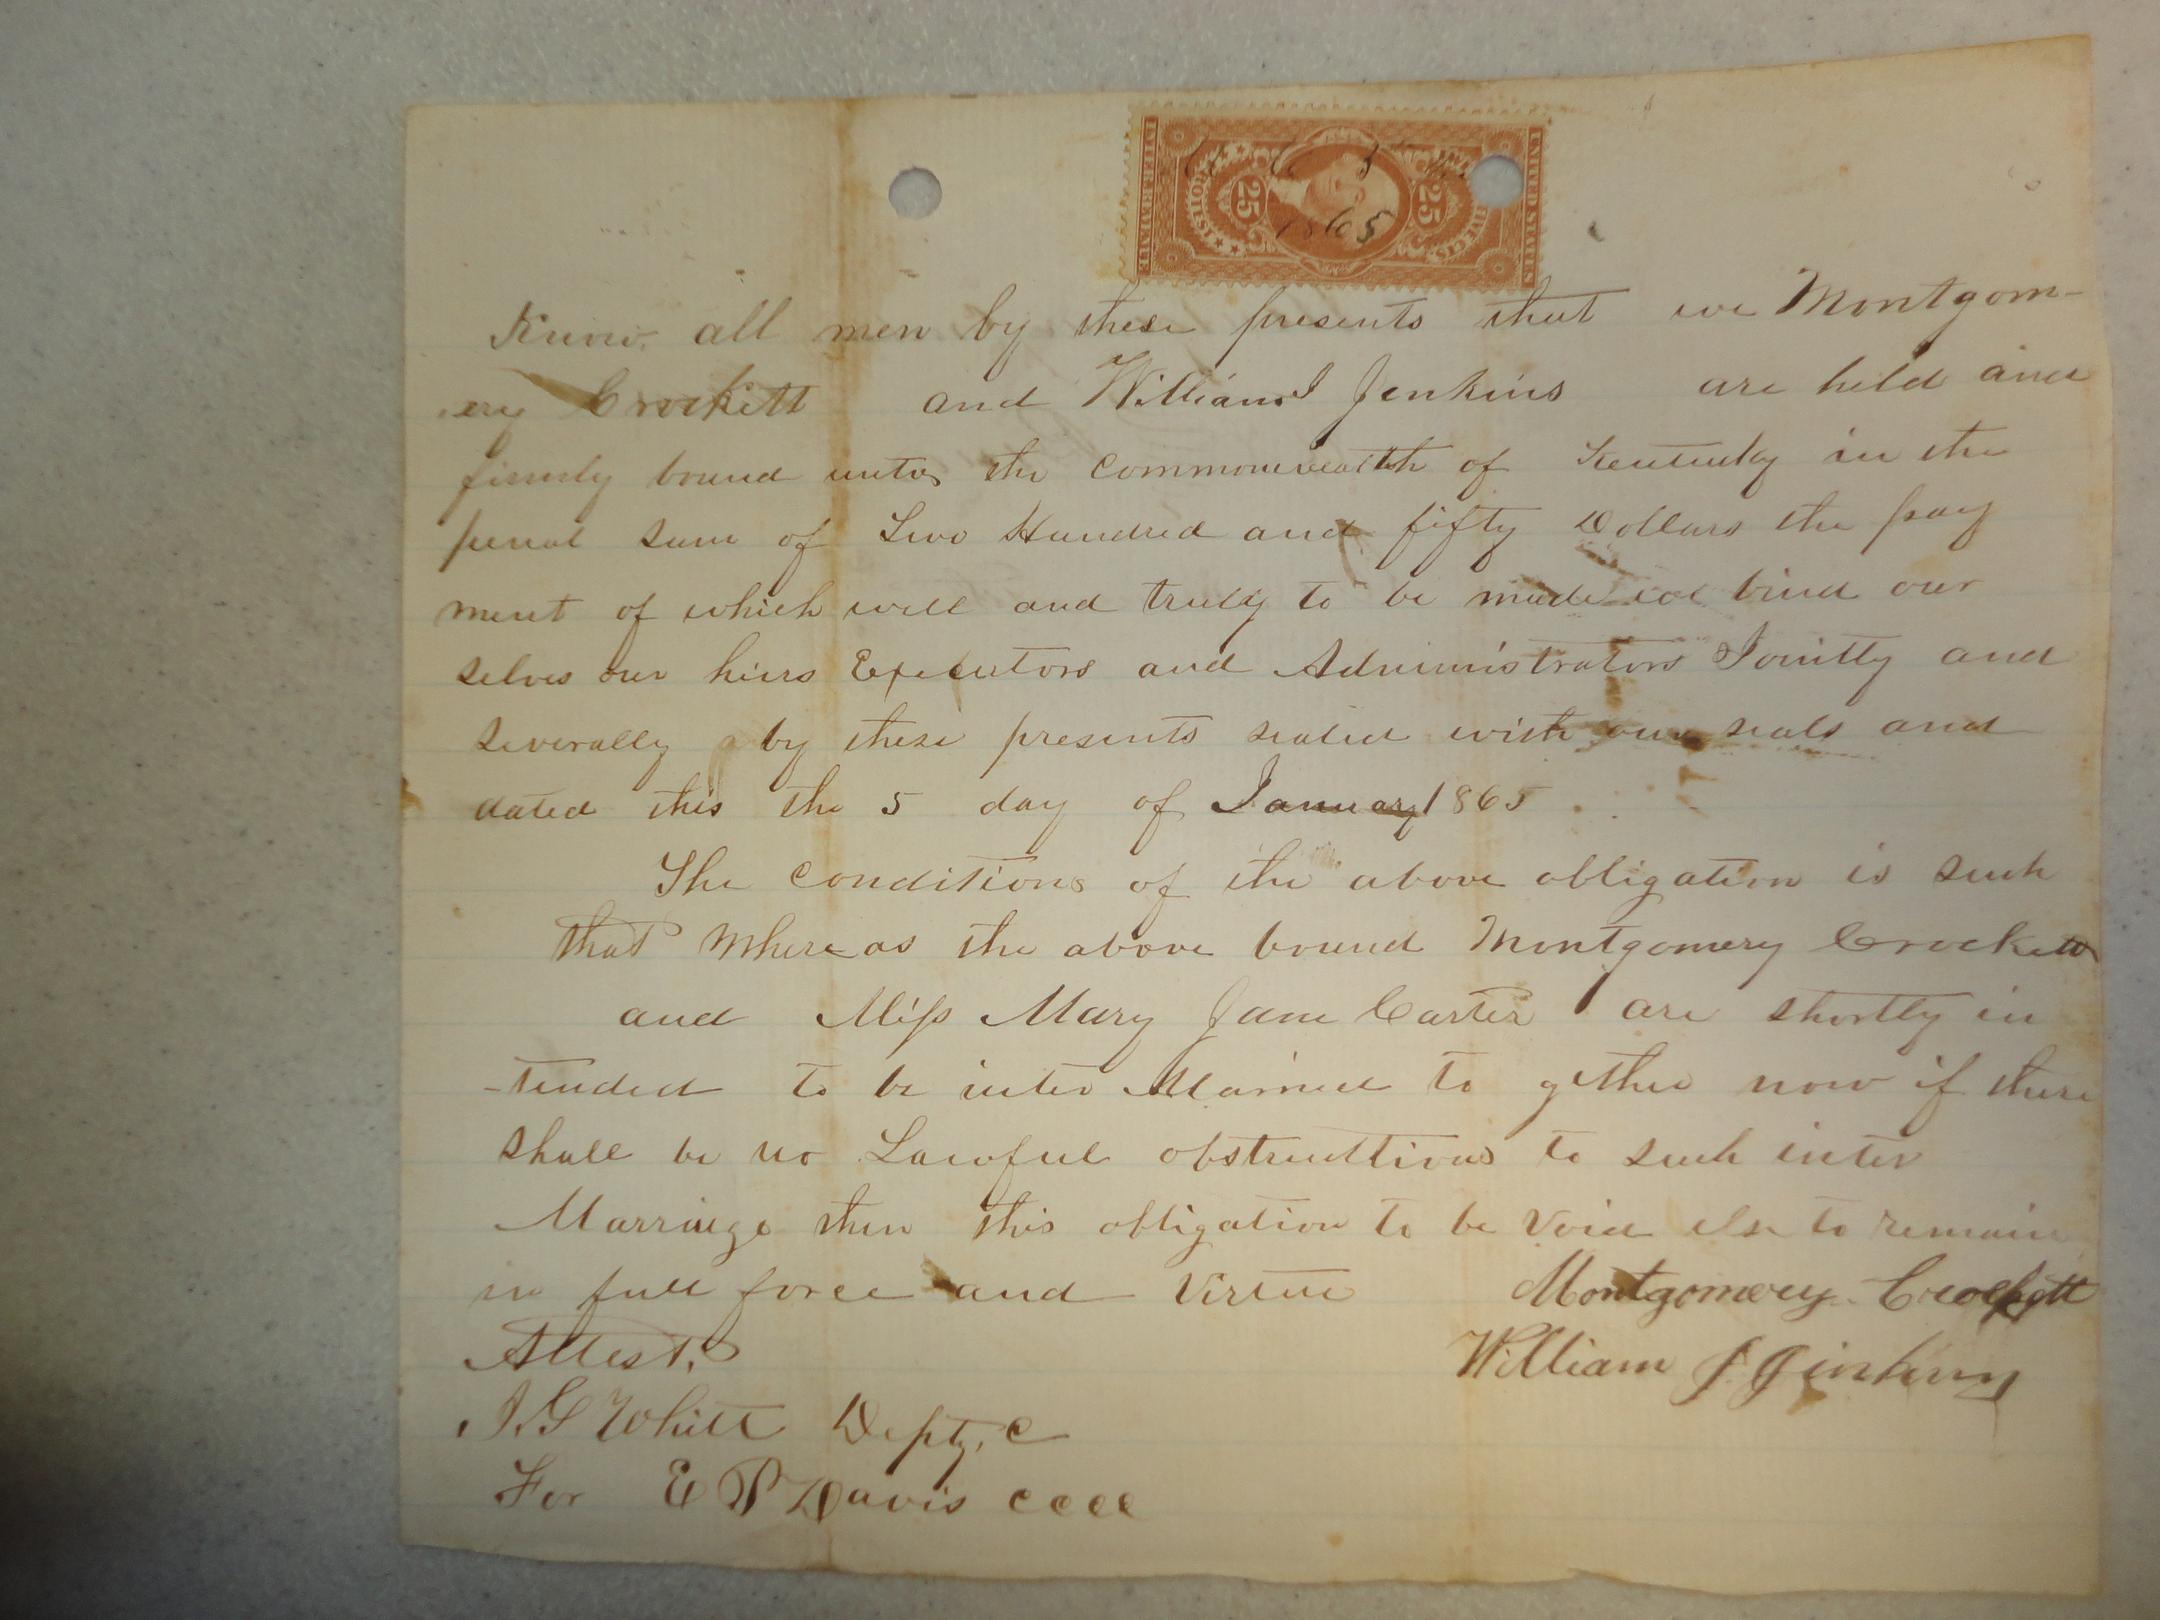 UNITED STATES
INTER. REVENUE
25 25
1865
Know all men by these presents that we Montgom-
ery Crockett and William J Jenkins are held and
firmly bound unto the commonwealth of Kentucky in the
penal sum of Two Hundred and fifty Dollars the pay
ment of which well and truly to be made we bind our
selves our hiers Executors and Administrators Jointly and
severally by these presents sealed with our seals and
dated this the 5 day of January 1865
The conditions of the above obligation is such
that Whereas the above bound Montgomery Crockett
and Miss Mary Jane Carter are shortly in
-tended to be inter Married to gether now if there
shall be no Lawful obstructtions to such inter
Marriage then this obligation to be void else to remain
in full force and Virtue Montgomery Crockett
Attest, William J. Jinkins
J. G Whitt Depty, C
For E P Davis cccc